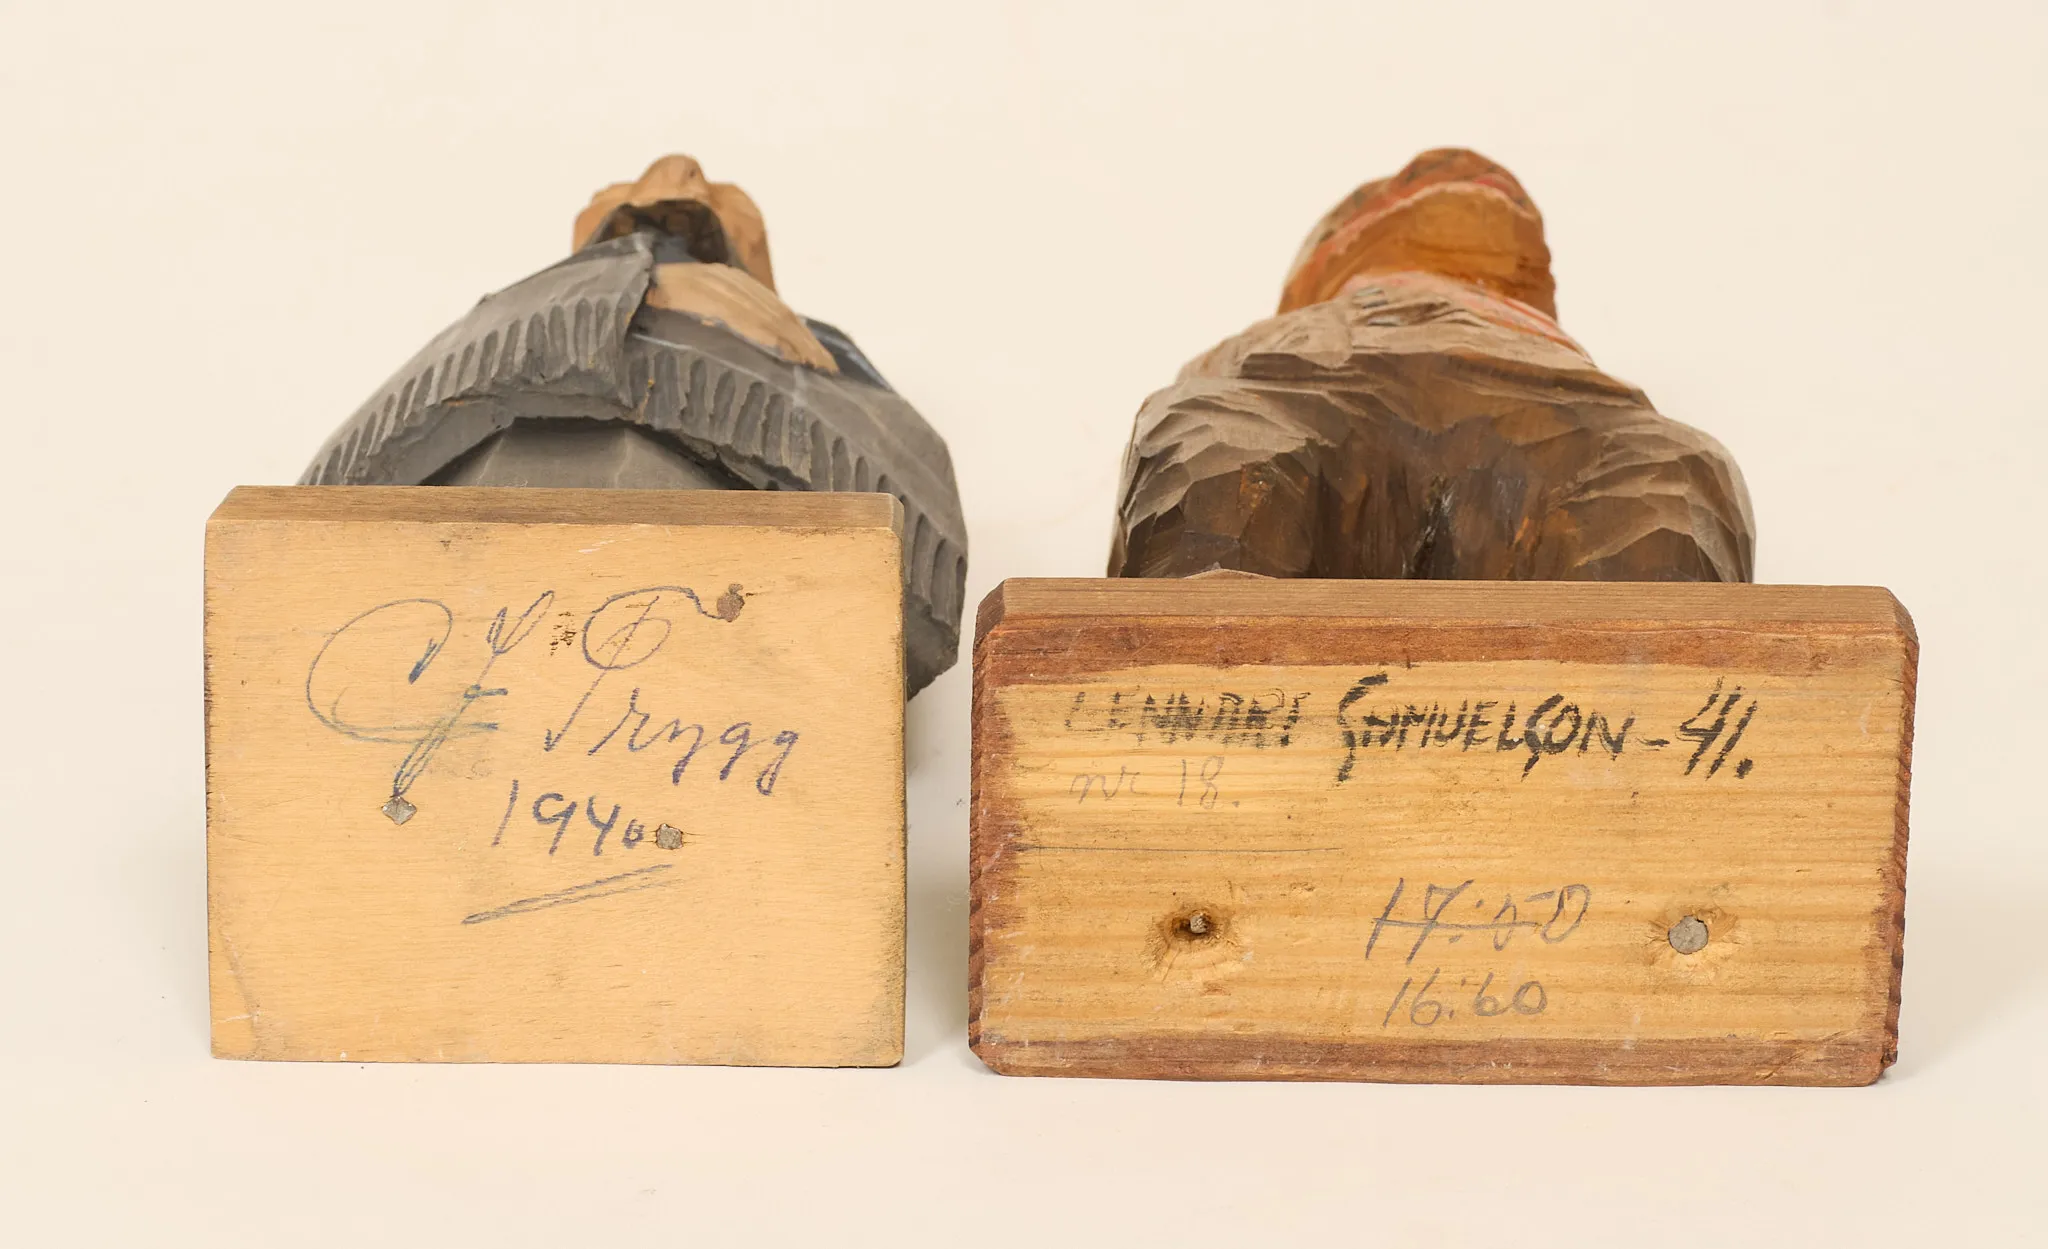 C J Trygg
1940
LENNART SAMUELSON - 41.
nr 18.
17:50
16:60